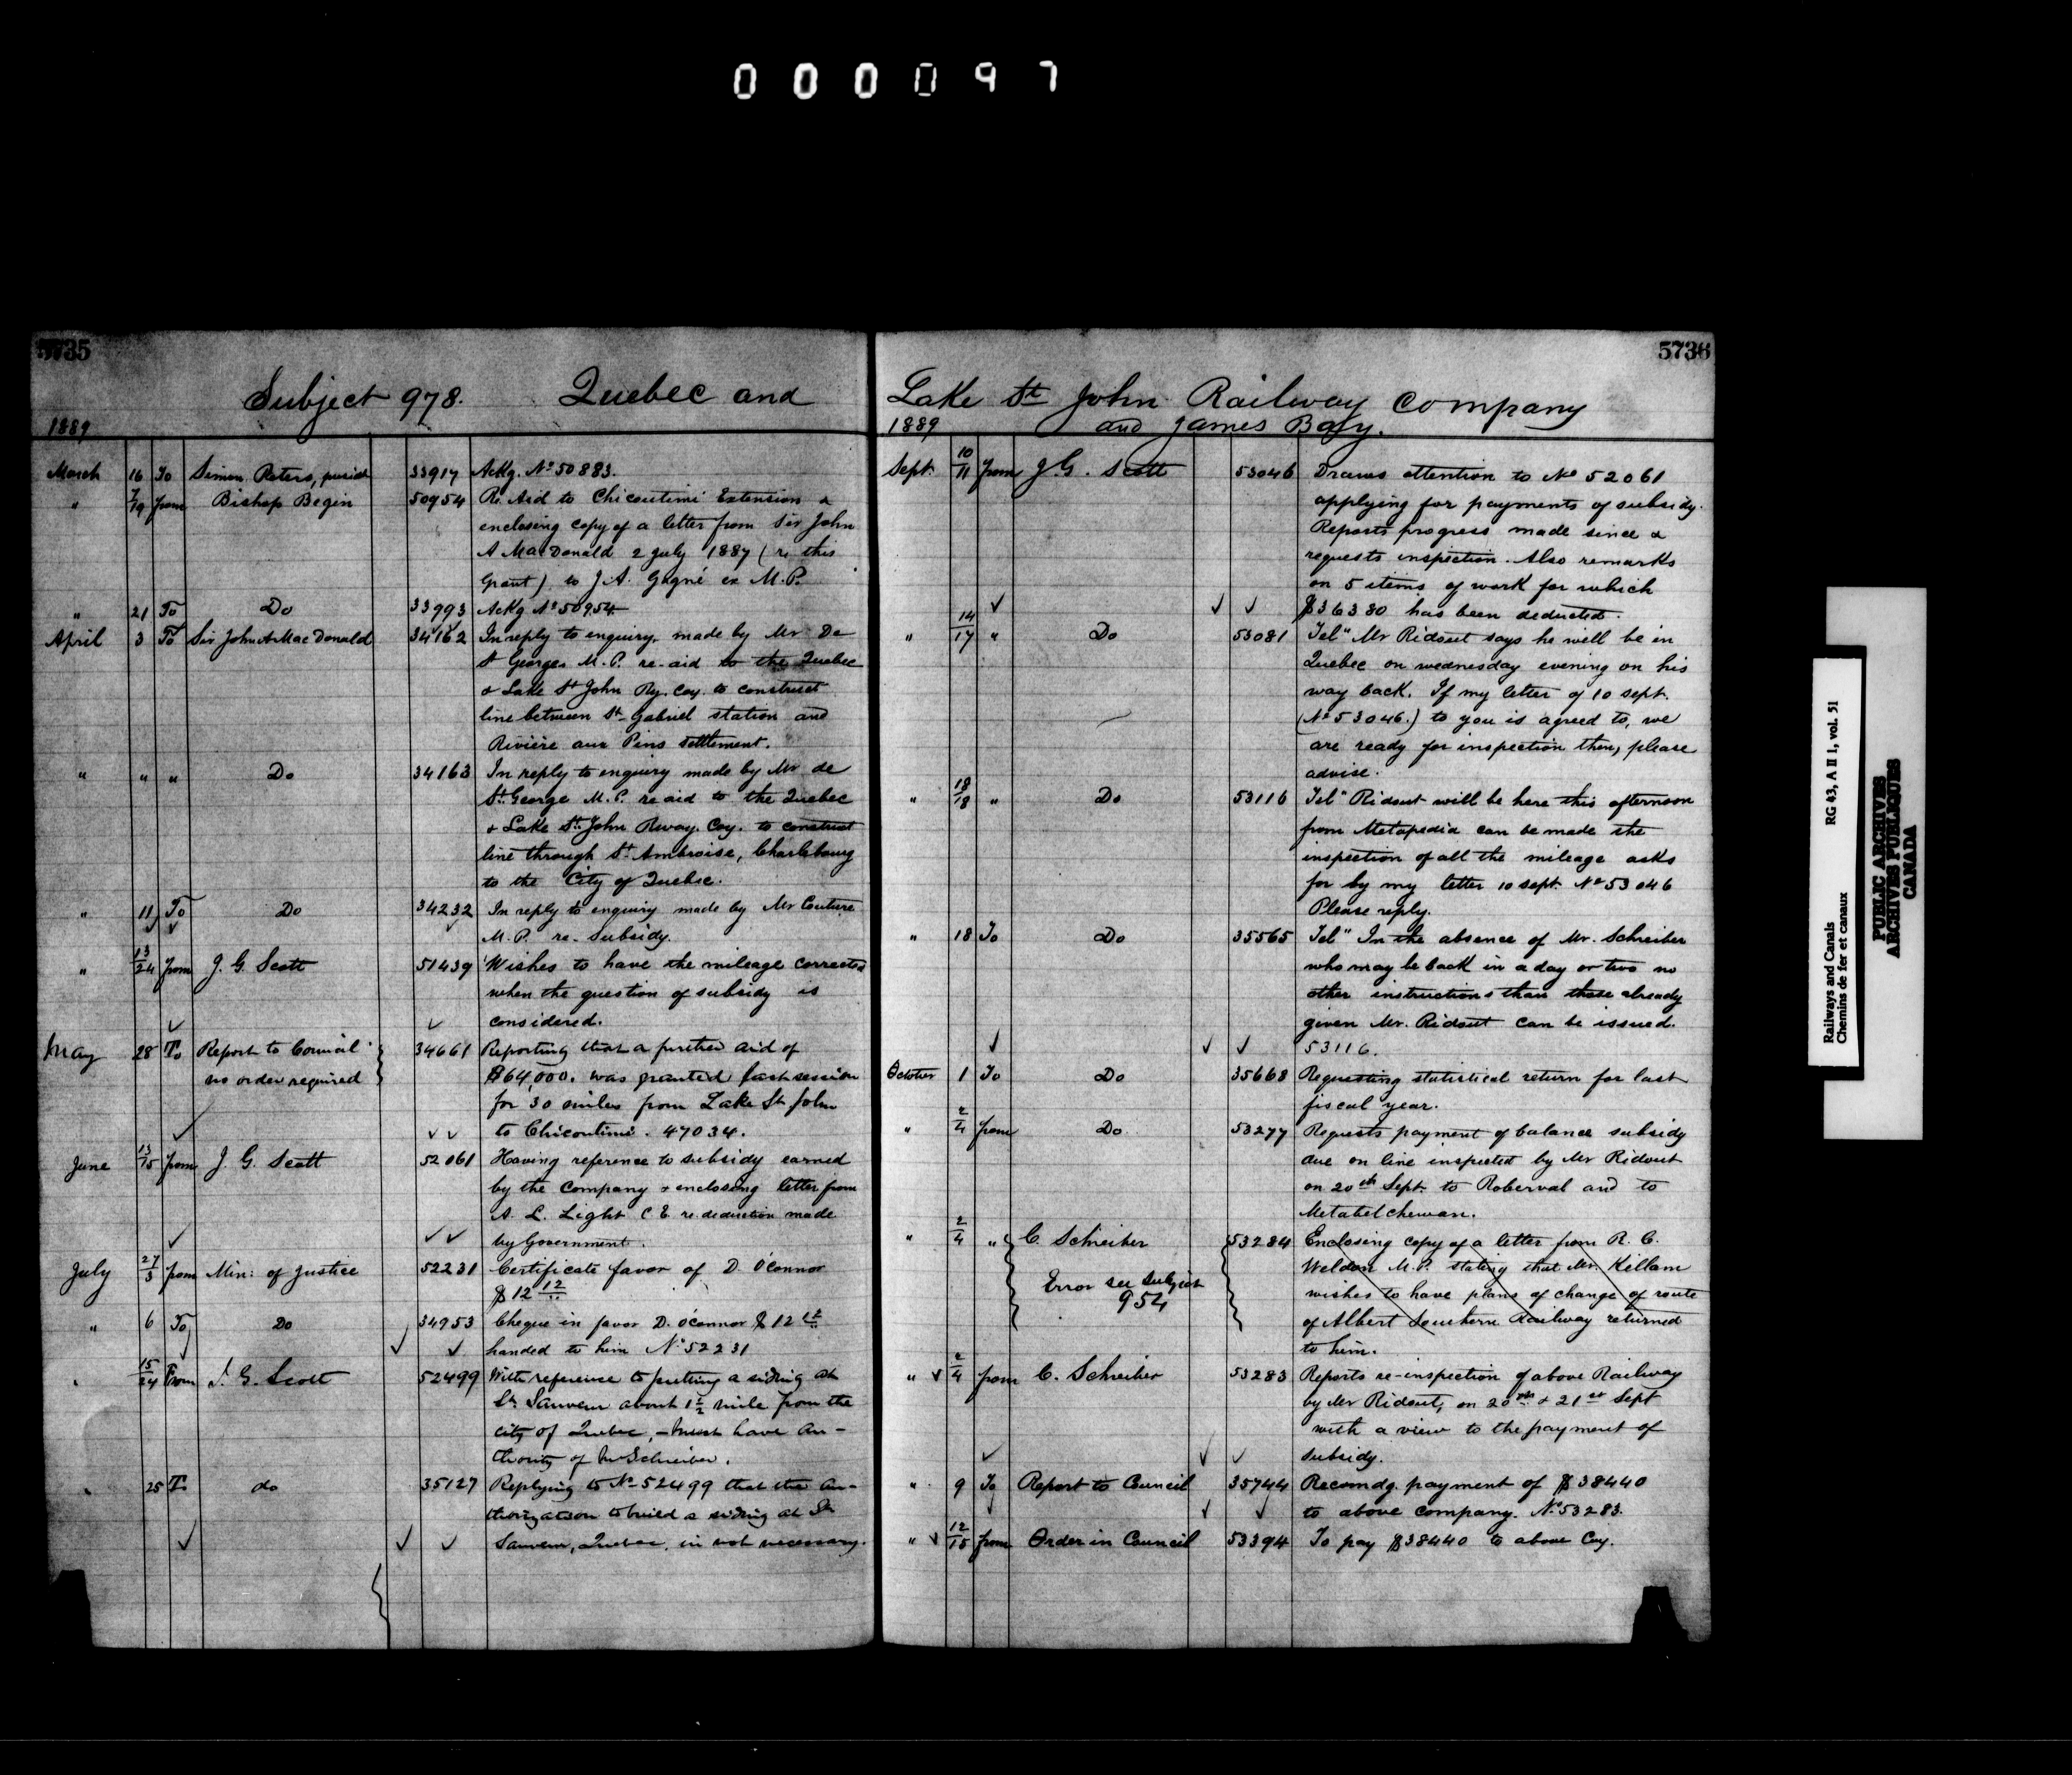 000097
5735
Subject 978. Quebec and
1889
March 16 To Simon Peters, 33917 Ackg. No 50883.
" 7/19 from Bishop Begin 50954 Re. Aid to Chicoutimi Extension &
enclosing copy of a letter from Sir John
A MacDonald 2 July 1887 (re this
Grant) to J.A. Gagné ex M.P.
" 21 To Do 33993 Ackg No 50954
April 3 To Sir John A MacDonald 34162 In reply to enquiry, made by Mr De
St Georges M.P. re-aid to the Quebec
& Lake St John Ry. Coy. to construct
line between St Gabriel station and
Rivière aux Pins settlement.
" " " Do 34163 In reply to enquiry made by Mr de
St. George M.P. re aid to the Quebec
& Lake St. John Rway. Coy. to construct
line through St. Ambroise, Charlebourg
to the City of Quebec.
" 11 To Do 34232 In reply to enquiry made by Mr Couture
M.P. re. Subsidy.
" 13/24 from J. G. Scott 51439 Wishes to have the mileage corrected
when the question of subsidy is
considered.
May 28 To Report to Council 34661 Reporting that a further aid of
no order required $64,000. was granted last session
for 30 miles from Lake St John
to Chicoutimi. 47034.
June 13/15 from J. G. Scott 52061 Having reference to subsidy earned
by the Company & enclosing letter from
A. L. Light C E re. deduction made
by Government.
July 27/3 from Min: of Justice 52231 Certificate favor of D. O'Connor
$12 12/..
" 6 To Do 34953 Cheque in favor D. O'Connor $12
handed to him No 52231
" 15/24 From J. G. Scott 52499 With reference to putting a siding at
St. Sauveur about 1½ mile from the
city of Quebec, - must have au-
thority of Mr Schreiber.
" 25 To do 35127 Replying to No 52499 that the au-
thorization to build a siding at St
Sauveur, Quebec, is not necessary.
5736
Lake St John Railway Company
and James Bay.
1889
Sept. 10/11 from J. G. Scott 53046 Draws attention to No 52061
applying for payments of subsidy.
Reports progress made since &
requests inspection. Also remarks
on 5 items of work for which
$36380 has been deducted.
" 14/17 " Do 53081 Tel" Mr Ridout says he will be in
Quebec on wednesday evening on his
way back. If my letter of 10 sept.
(No 53046.) to you is agreed to, we
are ready for inspection then, please
advise.
" 18/18 " Do 53116 Tel" Ridout will be here this afternoon
from Metapedia can be made the
inspection of all the mileage asks
for by my letter 10 sept. No 53046
Please reply.
" 18 To Do 35565 Tel" In the absence of Mr. Schreiber
who may be back in a day or two no
other instructions than those already
given Mr. Ridout can be issued.
53116.
October 1 To Do 35668 Requesting statistical return for last
fiscal year.
" 2/4 from Do 53277 Requests payment of balance subsidy
due on line inspected by Mr Ridout
on 20th Sept. to Roberval and to
Metabetchewan.
" 2/4 " C. Schreiber 53284 Enclosing copy of a letter from R. C.
Weldon M.P. stating that Mr. Killam
Error see Subject wishes to have plans of change of route
954 of Albert Southern Railway returned
to him.
" 2/4 from C. Schreiber 53283 Reports re-inspection of above Railway
by Mr Ridout, on 20th & 21st Sept
with a view to the payment of
subsidy.
" 9 To Report to Council 35744 Recomdg. payment of $38440
to above company. No 53283.
" 12/15 from Order in Council 53394 To pay $38440 to above Coy.
Railways and Canals RG 43, A II 1, vol. 51
Chemins de fer et canaux
PUBLIC ARCHIVES
ARCHIVES PUBLIQUES
CANADA